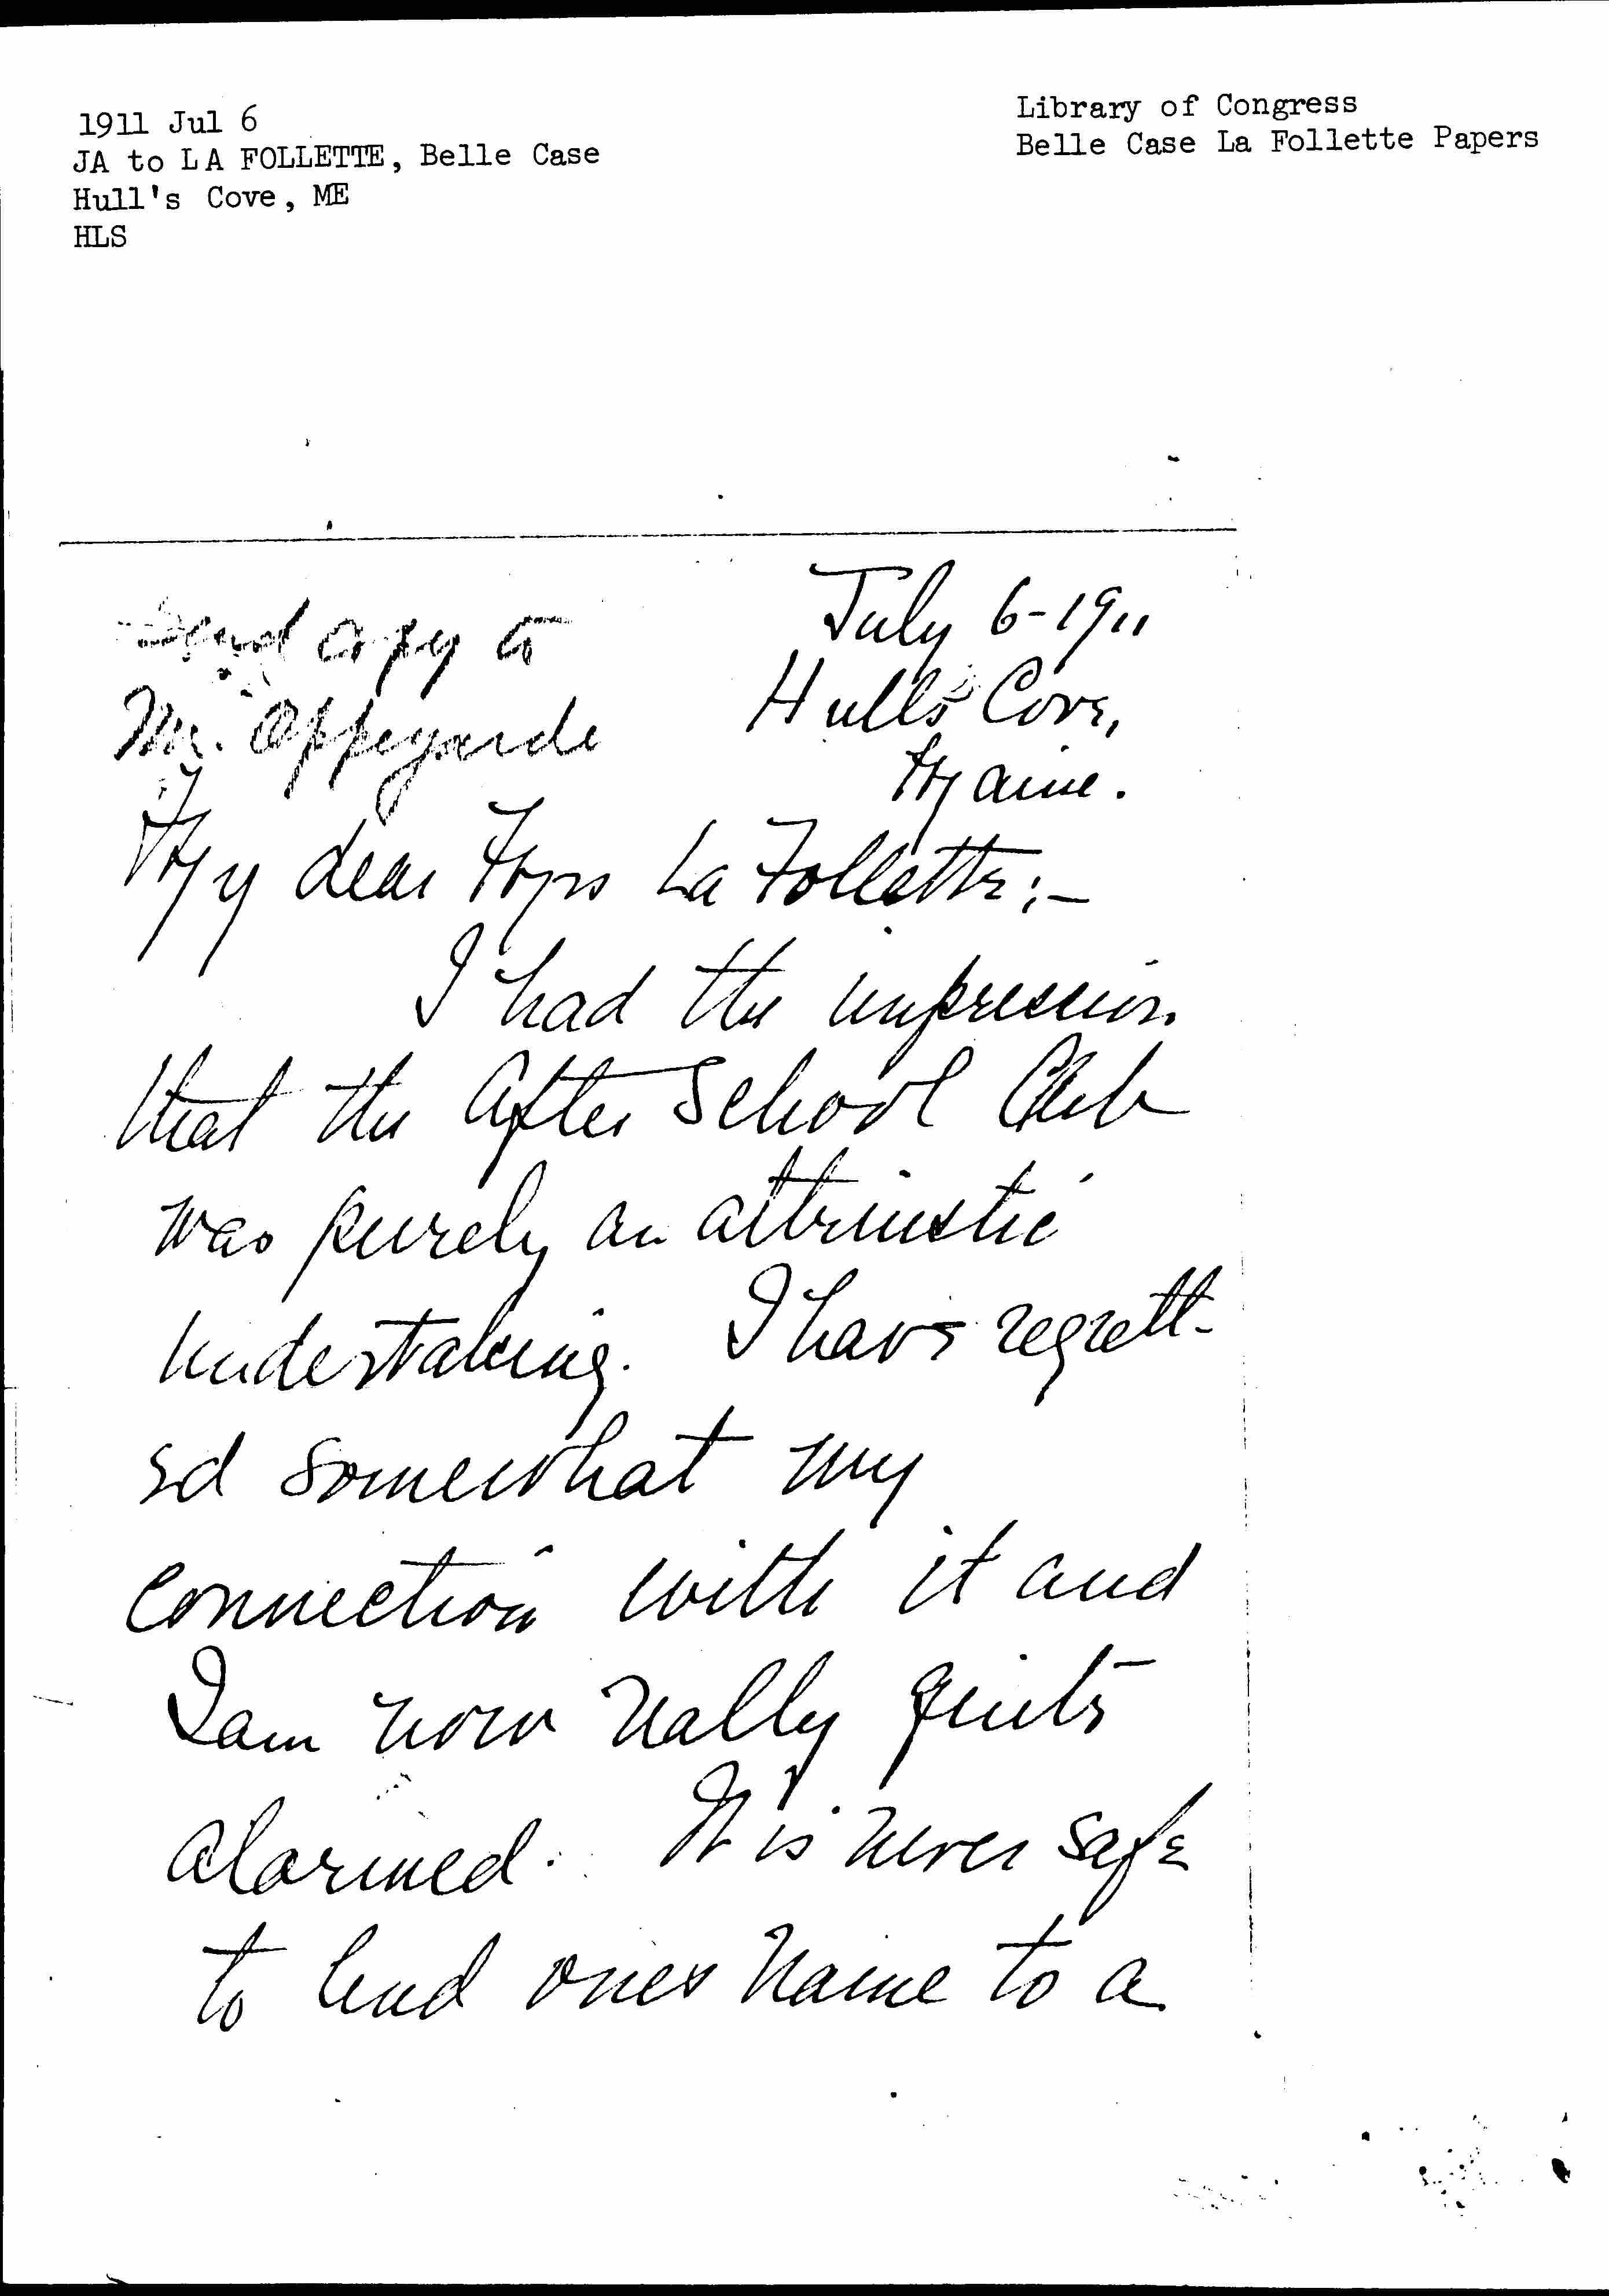 1911 Jul 6
JA to LA FOLLETTE, Belle Case
Hull's Cove, ME
HLS
Library of Congress
Belle Case La Follette Papers
Send copy to
Mr. Oppegarde
July 6-1911
Hull's Cove,
Maine.
My dear Mrs La Follette;-
I had the impression
that the After School Club
was purely an altruistic
undertaking. I have regrett-
ed somewhat my
connection with it and
I am now really quite
alarmed. It is never safe
to lend ones name to a